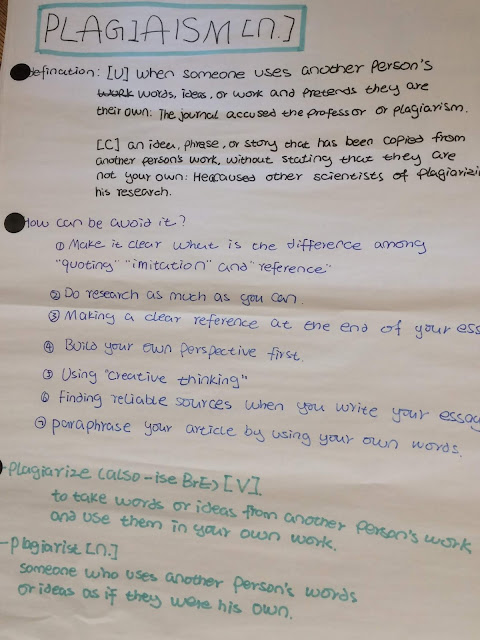 PLAGIAISM [n.]
definction: [U] when someone uses another person's
work words, ideas, or work and pretends they are
their own: The journal accused the professor or plagiarism.
[C] an idea, phrase, or story that has been copied from
another person's work, without stating that they are
not your own: He accused other scientists of plagiarizi
his research.
How can be avoid it?
① Make it clear what is the difference among
"quoting" "imitation" and "reference"
② Do research as much as you can.
③ Making a clear reference at the end of your ess
④ Build your own perspective first.
⑤ Using "creative thinking"
⑥ Finding reliable sources when you write your essay
⑦ paraphrase your article by using your own words.
-Plagiarize (also -ise BrE) [V].
to take words or ideas from another person's work
and use them in your own work.
-Plagiarist [n.]
someone who uses another person's words
or ideas as if they were his own.